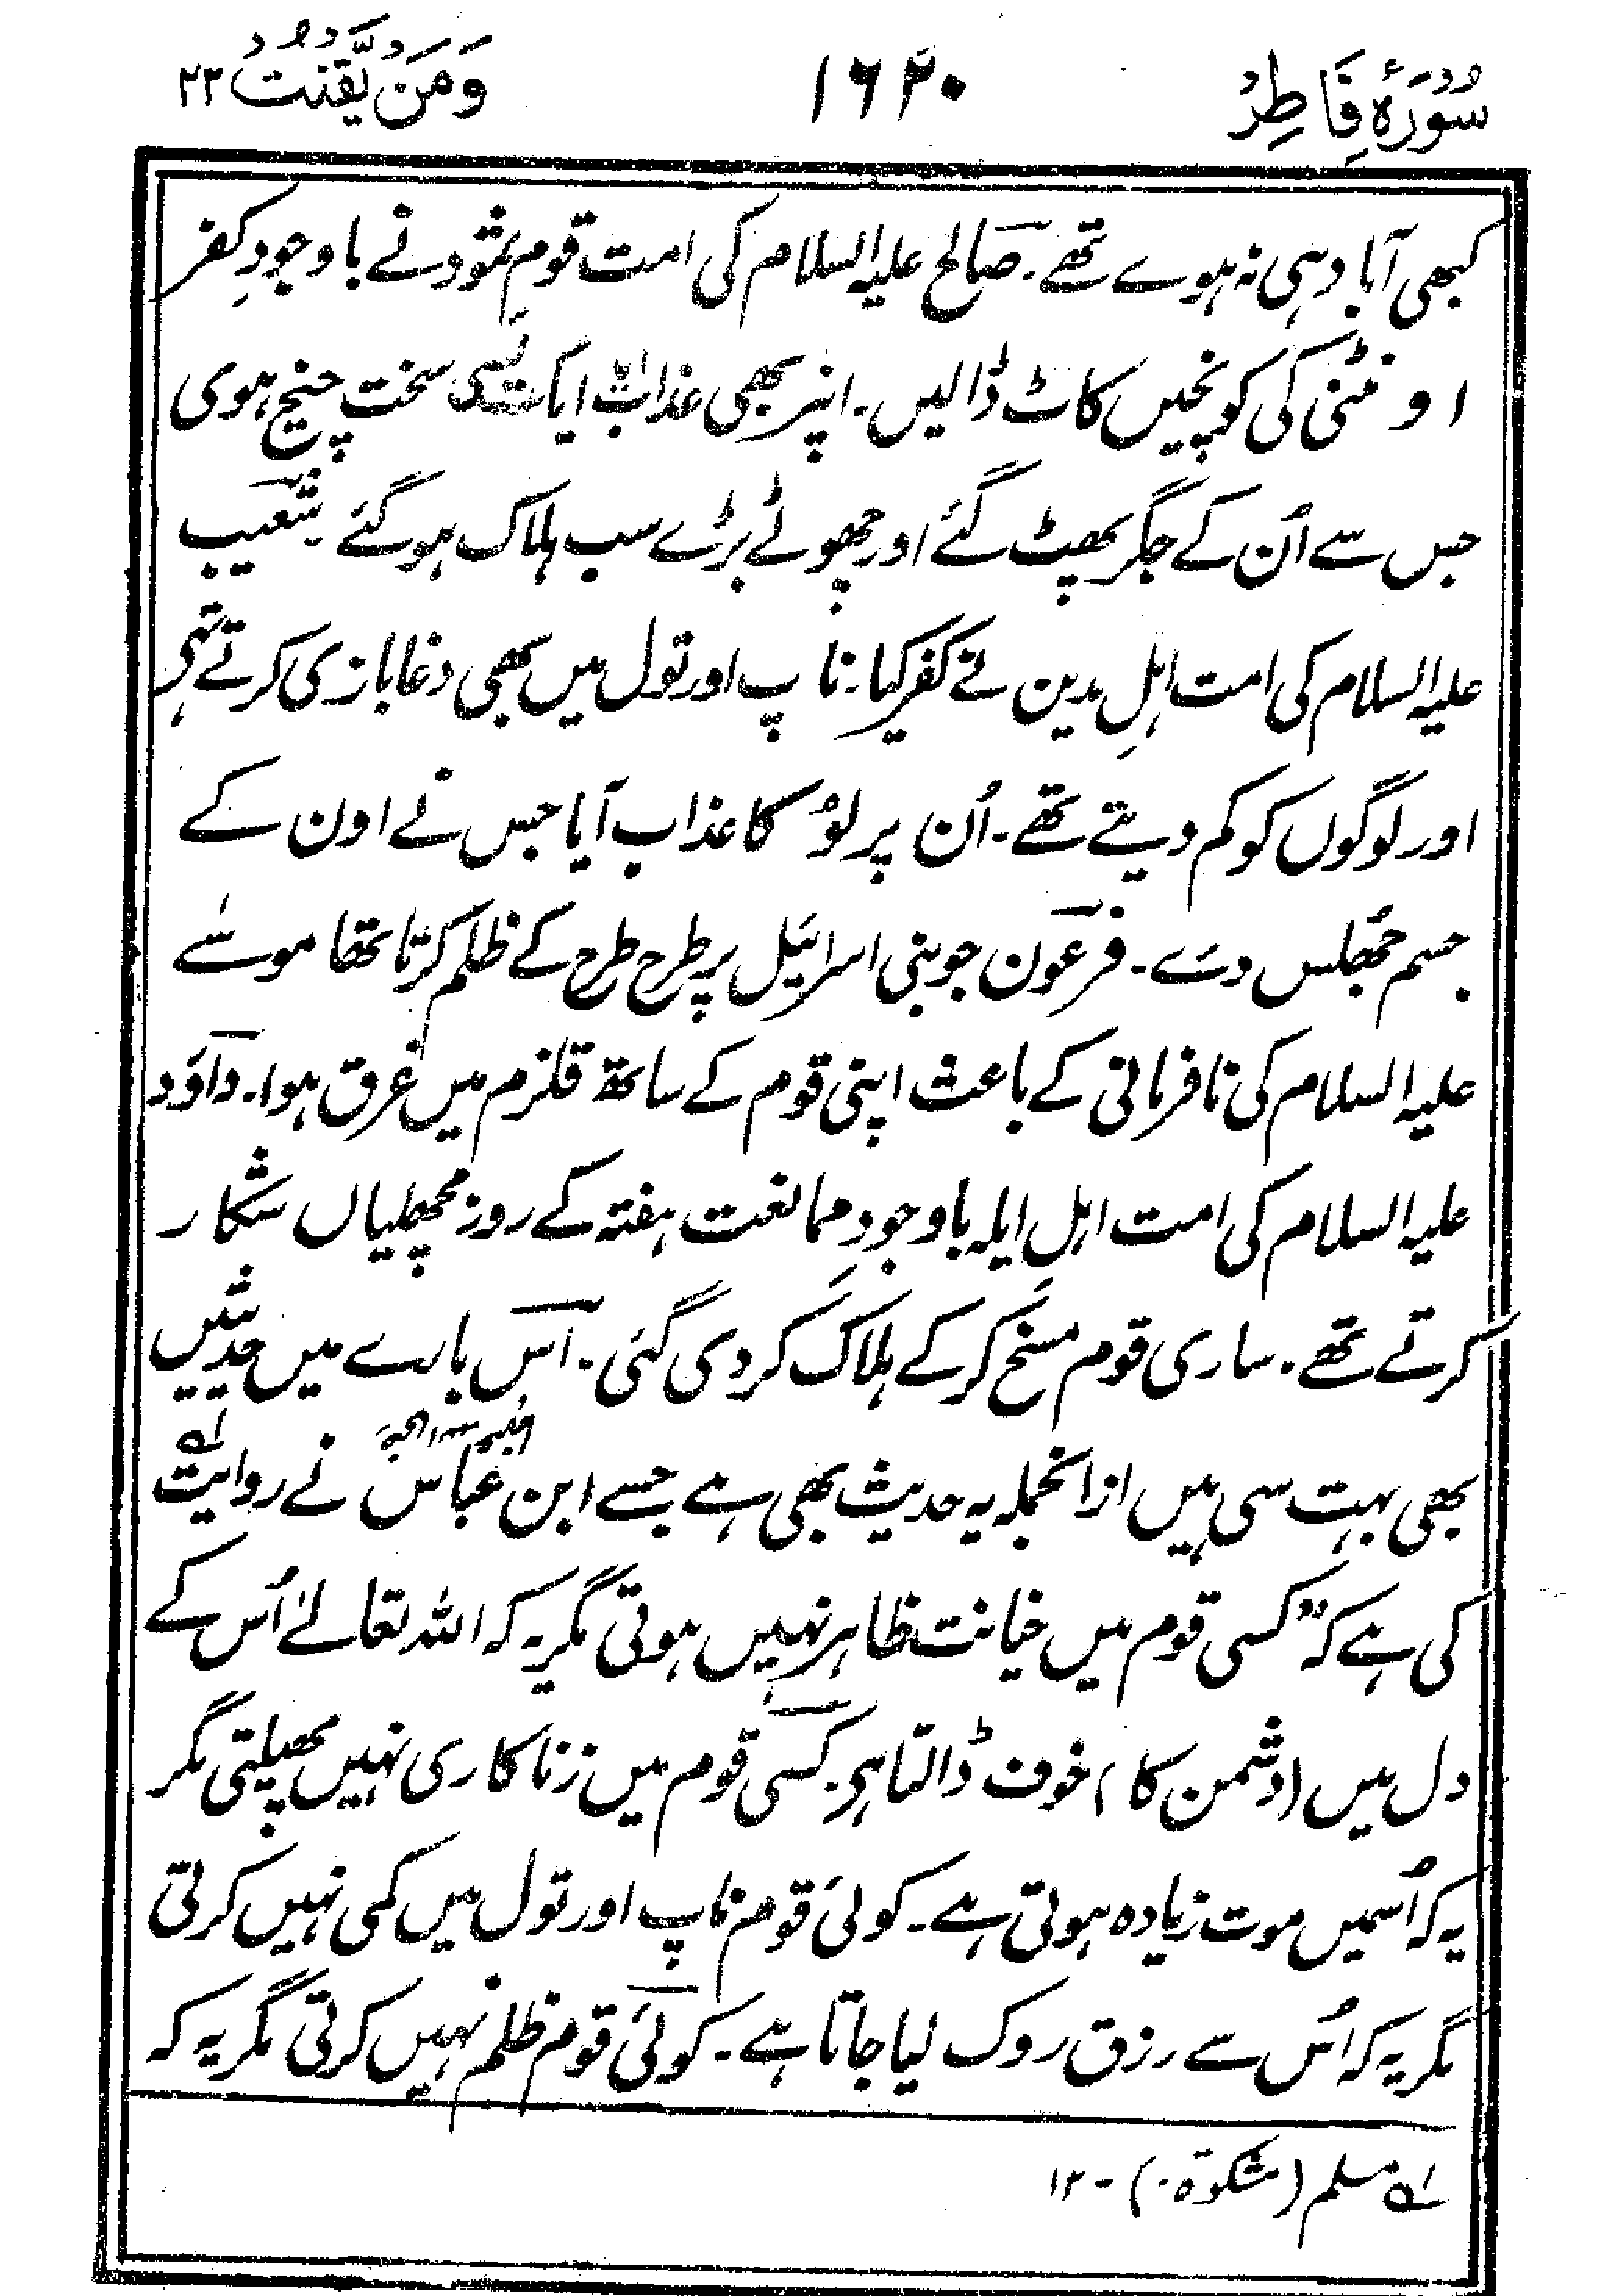 سُوْرَۂ فَاطِرْ ۱۶۲۰ وَمَنْ يَّقْنُتْ ۲۲
کبھی آباد ہی نہ ہوے تھے۔ صالح علیہ السلام کی امت قومِ ثمود نے باوجودِ کفر
اونٹنی کی کونچیں کاٹ ڈالیں۔ انپر بھی عذاب آیا سخت چنیج ہوی
جس سے اُن کے جگر پھٹ گئے اور چھوٹے بڑے سب ہلاک ہو گئے۔ شعیب
علیہ السلام کی امت اہلِ مدین نے کفر کیا۔ ناپ اور تول میں بھی دغا بازی کرتے تھی
اور لوگوں کو کم دیتے تھے۔ اُن پر لوُ کا عذاب آیا جس نے اون کے
جسم جھُلس دئے۔ فرعون جو بنی اسرائیل پر طرح طرح کے ظلم کرتا تھا موسےٰ
علیہ السلام کی نافرمانی کے باعث اپنی قوم کے ساتھ قلزم میں غرق ہوا۔ داؤد
علیہ السلام کی امت اہلِ ایلہ باوجودِ ممانعت ہفتہ کے روز مچھلیاں شکار
کرتے تھے۔ ساری قوم مسخ کر کے ہلاک کر دی گئی۔ اس بارے میں حدیثیں
بھی بہت سی ہیں ازانجملہ یہ حدیث بھی ہے جسے ابن عباس نے روایت لہ
کی ہے کہ "کسی قوم میں خیانت ظاہر نہیں ہوتی مگر یہ کہ اللہ تعالےٰ اُس کے
دل میں (دشمن کا) خوف ڈالتا ہی۔ کسی قوم میں زنا کاری نہیں پھیلتی مگر
یہ کہ اُسمیں موت زیادہ ہوتی ہے۔ کوئی قوم ناپ اور تول میں کمی نہیں کرتی
مگر یہ کہ اُس سے رزق روک لیا جاتا ہے۔ کوئی قوم ظلم نہیں کرتی مگر یہ کہ
لہ مسلم (مشکوۃ۔)۔ ۱۲